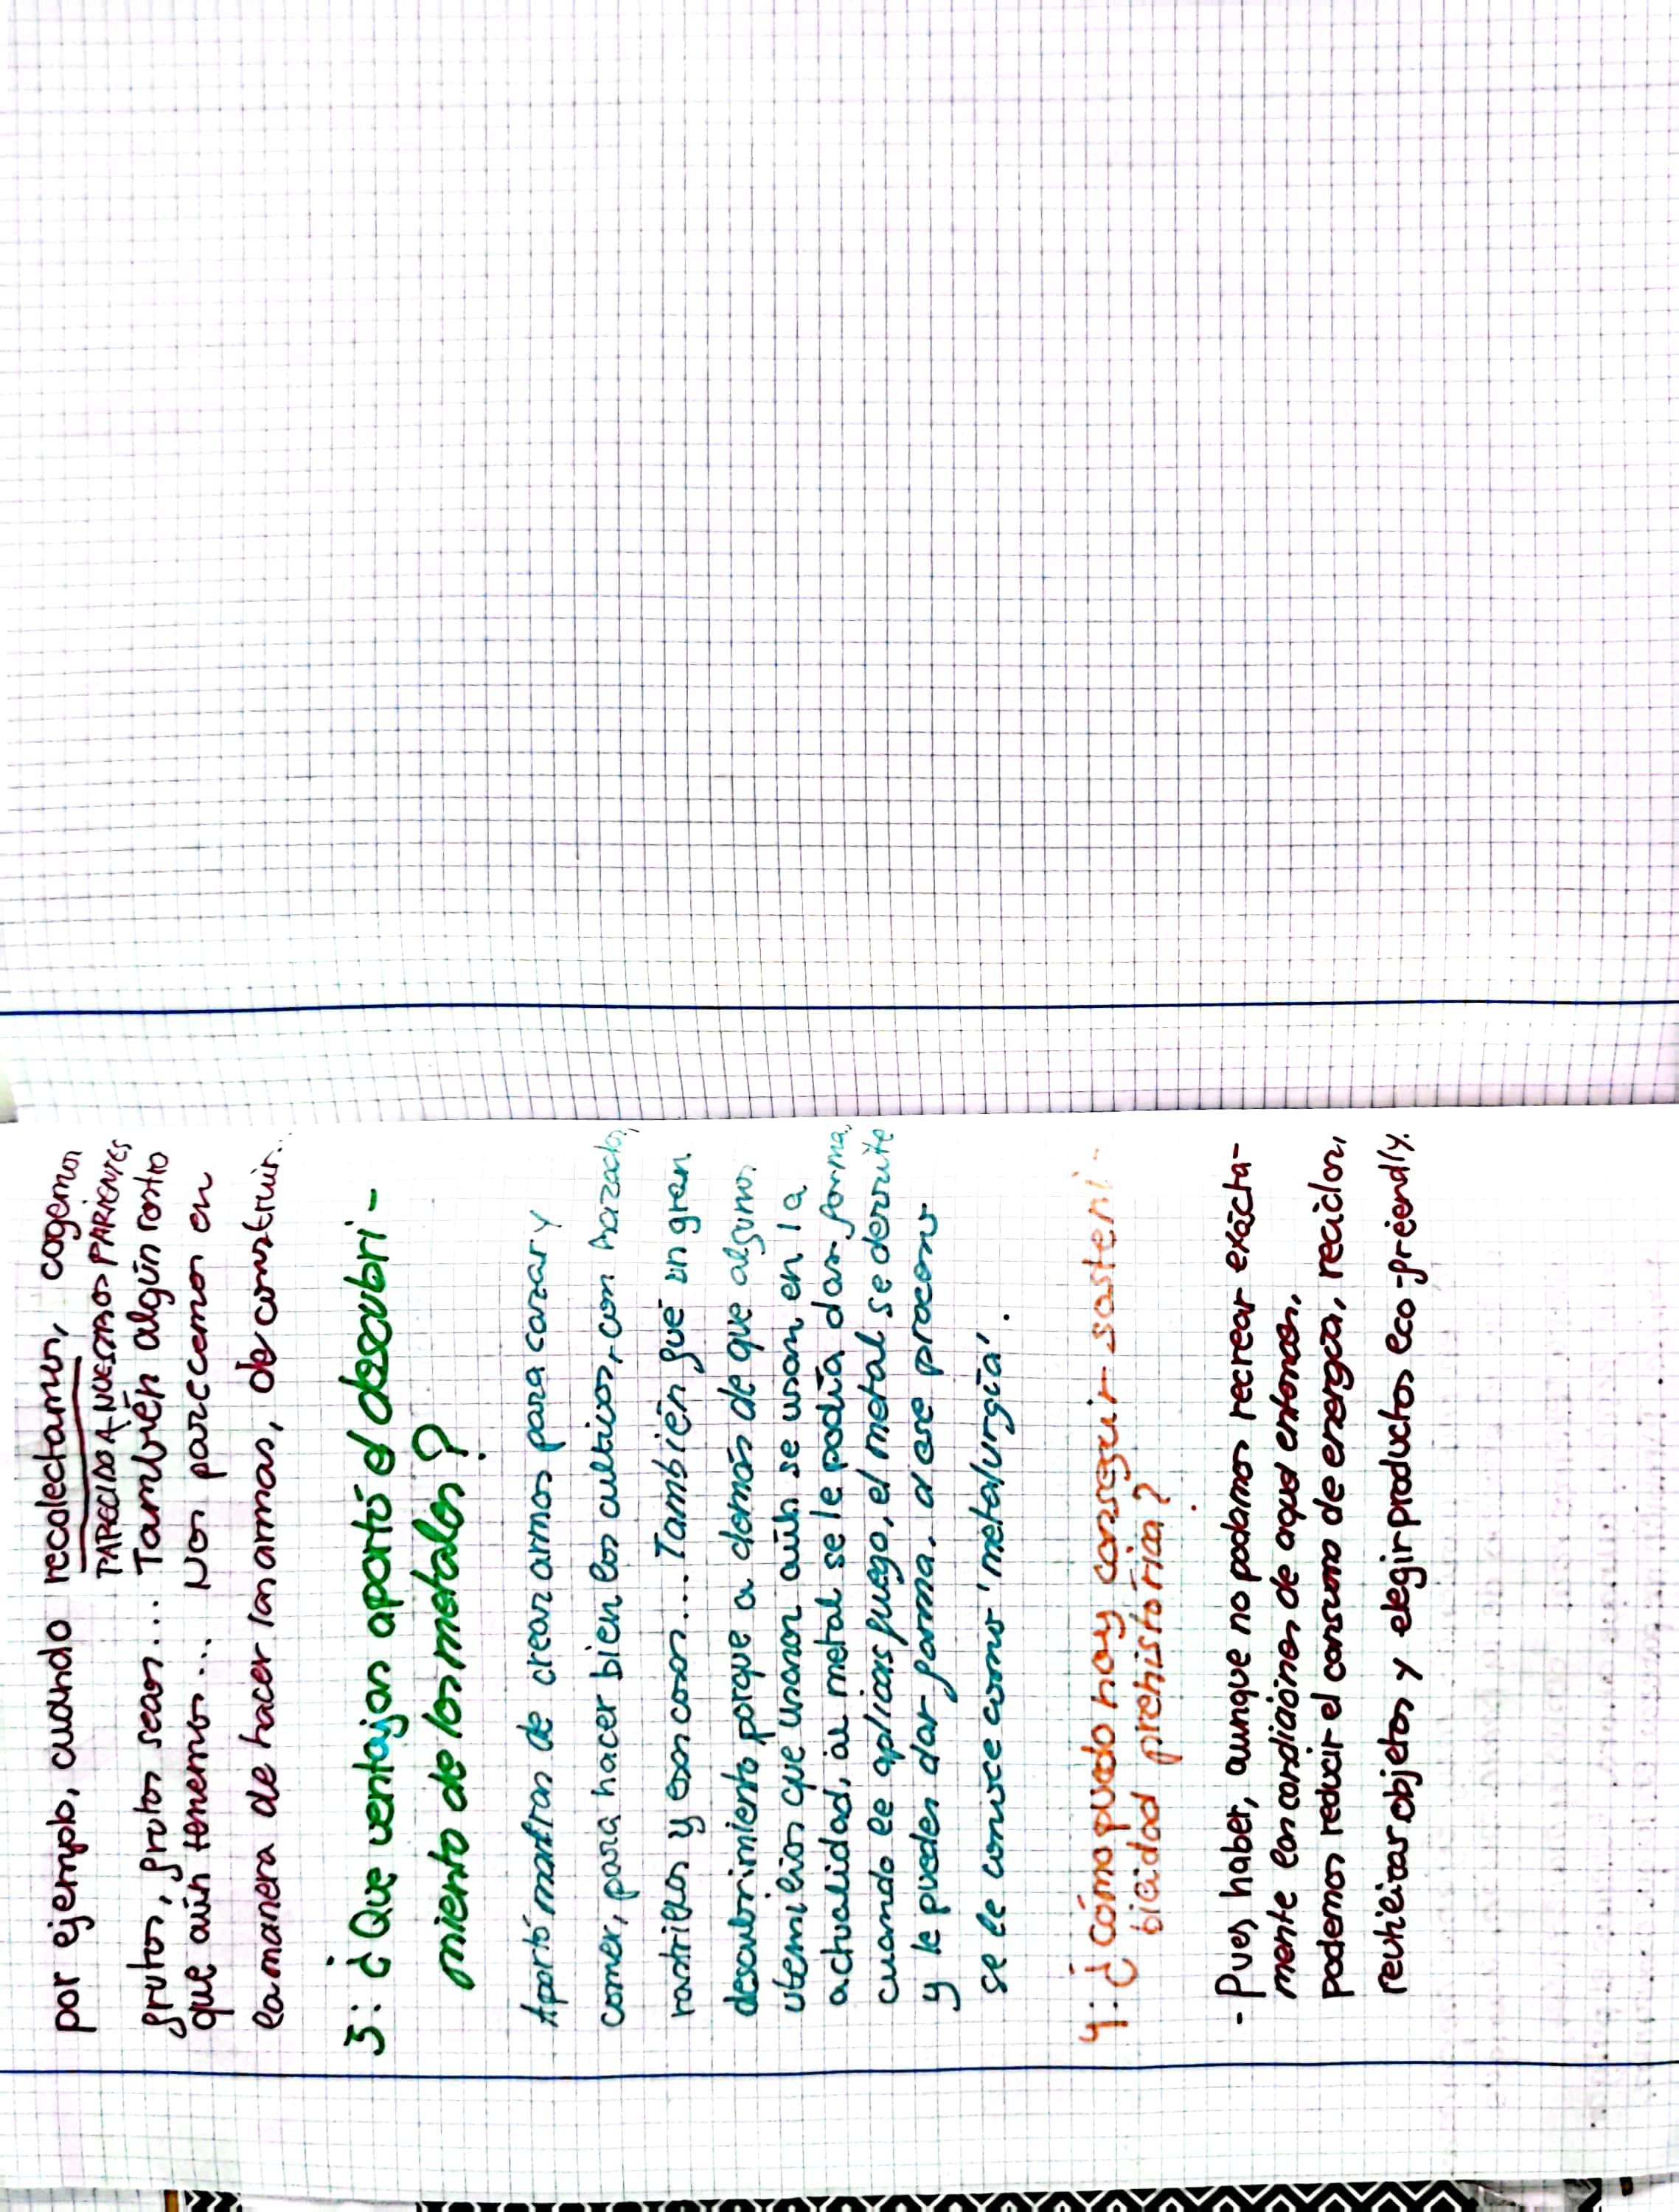 por ejemplo, cuando recolectamos, cogemos
PARECIDO A NUESTROS PARIENTES
frutos, frutos secos... También algún rostro
que aún tenemos... Nos parecemos en
la manera de hacer las armas, de construir...
5: ¿Que ventajas aportó el descubri-
miento de los metales?
Aportó de crear armas para cazar y
comer, para hacer bien los cultivos, con hazadas,
rastrillos y esas cosas... También fué un gran
descubrimiento porque a demás de que algunos
utensilios que usaron aún se usan en la
actualidad, al metal se le podía dar forma,
cuando le aplicas fuego, el metal se derrite
y le puedes dar forma, a ese proceso
se le conoce como 'metalurgia'.
4: ¿Cómo puedo hoy conseguir sosteni-
bilidad prehistórica?
- Pues haber, aunque no podamos recrear exácta-
mente las condiciones de aquel entonces,
podemos reducir el consumo de energía, reciclar,
reutilizar objetos y elegir productos eco-friendly.